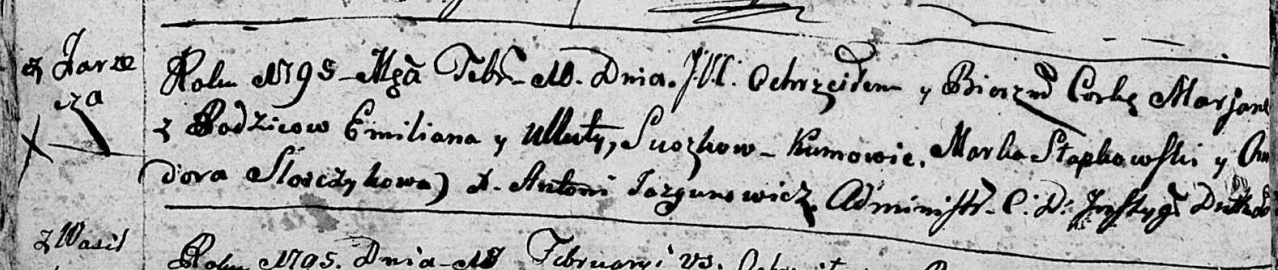 z Jarze
cza
Roku 1795 Mga Febr. 10. Dnia. J.M. Ochrzciłem y Bierzm Corkę Marjane
z Rodzicow Emiliana y Ulluty, Suozkow Kumowie. Marko Słapkowski y
dora Sloczykowa) X. Antoni Jazgunowicz Administr. C. D.
z Wasil
Roku 1795. Dnia 18 Februaryi VS.